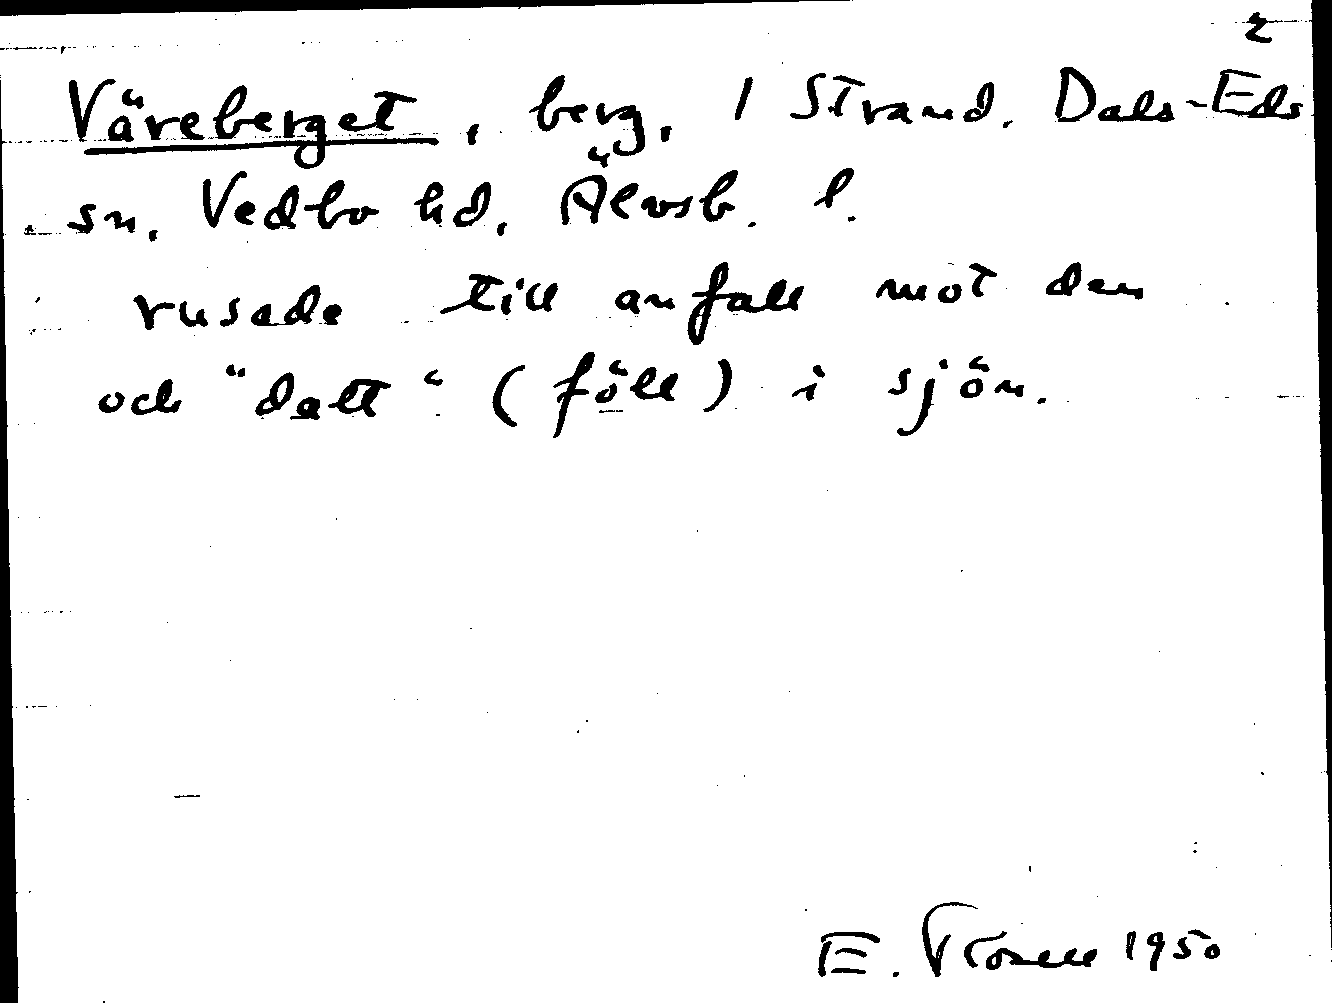 2
Väreberget, berg, 1 Strand. Dals-Eds
sn. Vedbo hd, Älvsb. l.
rusade till anfall mot den
och "datt" (föll) i sjön.
E. 1950